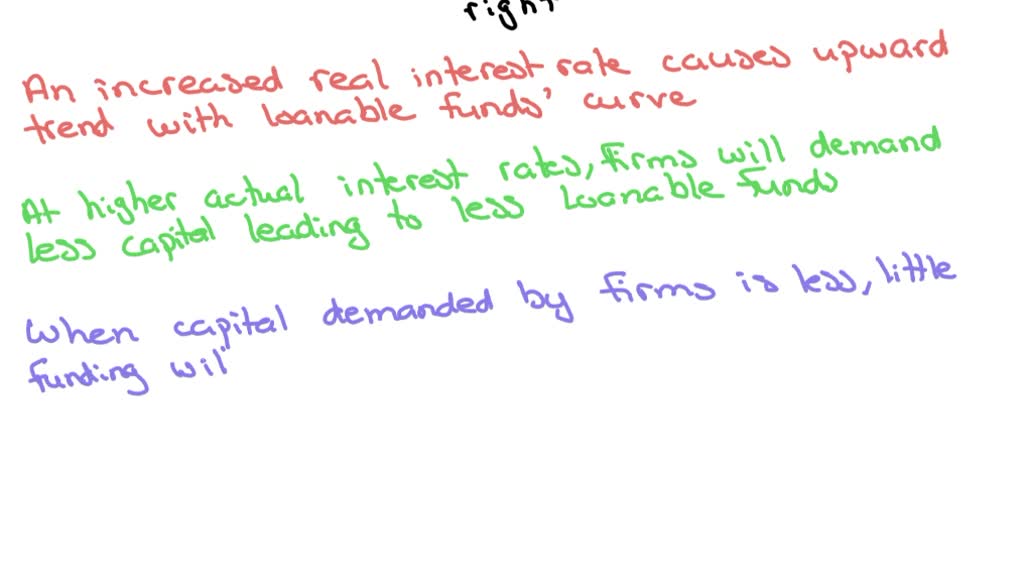 right
An increased real interest rate causes upward
trend with loanable funds' curve
At higher actual interest rates, firms will demand
less capital leading to less loanable funds
When capital demanded by firms is less, little
funding wil